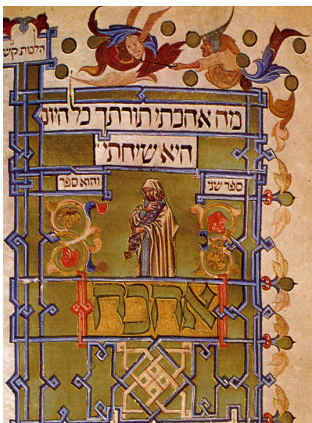 הלכות קש
מה אהבתי תורתך כל היום
היא שיחתי
ספר שני והוא ספר
אהבה